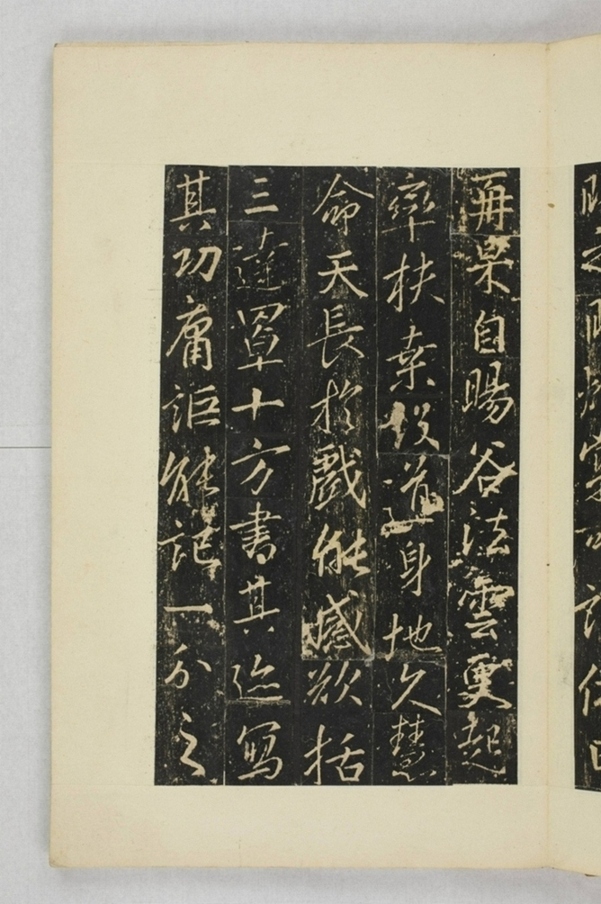 再杲自暘谷法雲更起
率扶桑道身地久慧
命天長於戲能感括
三達罩十方書其迹寫
其功庸詎能記一分之